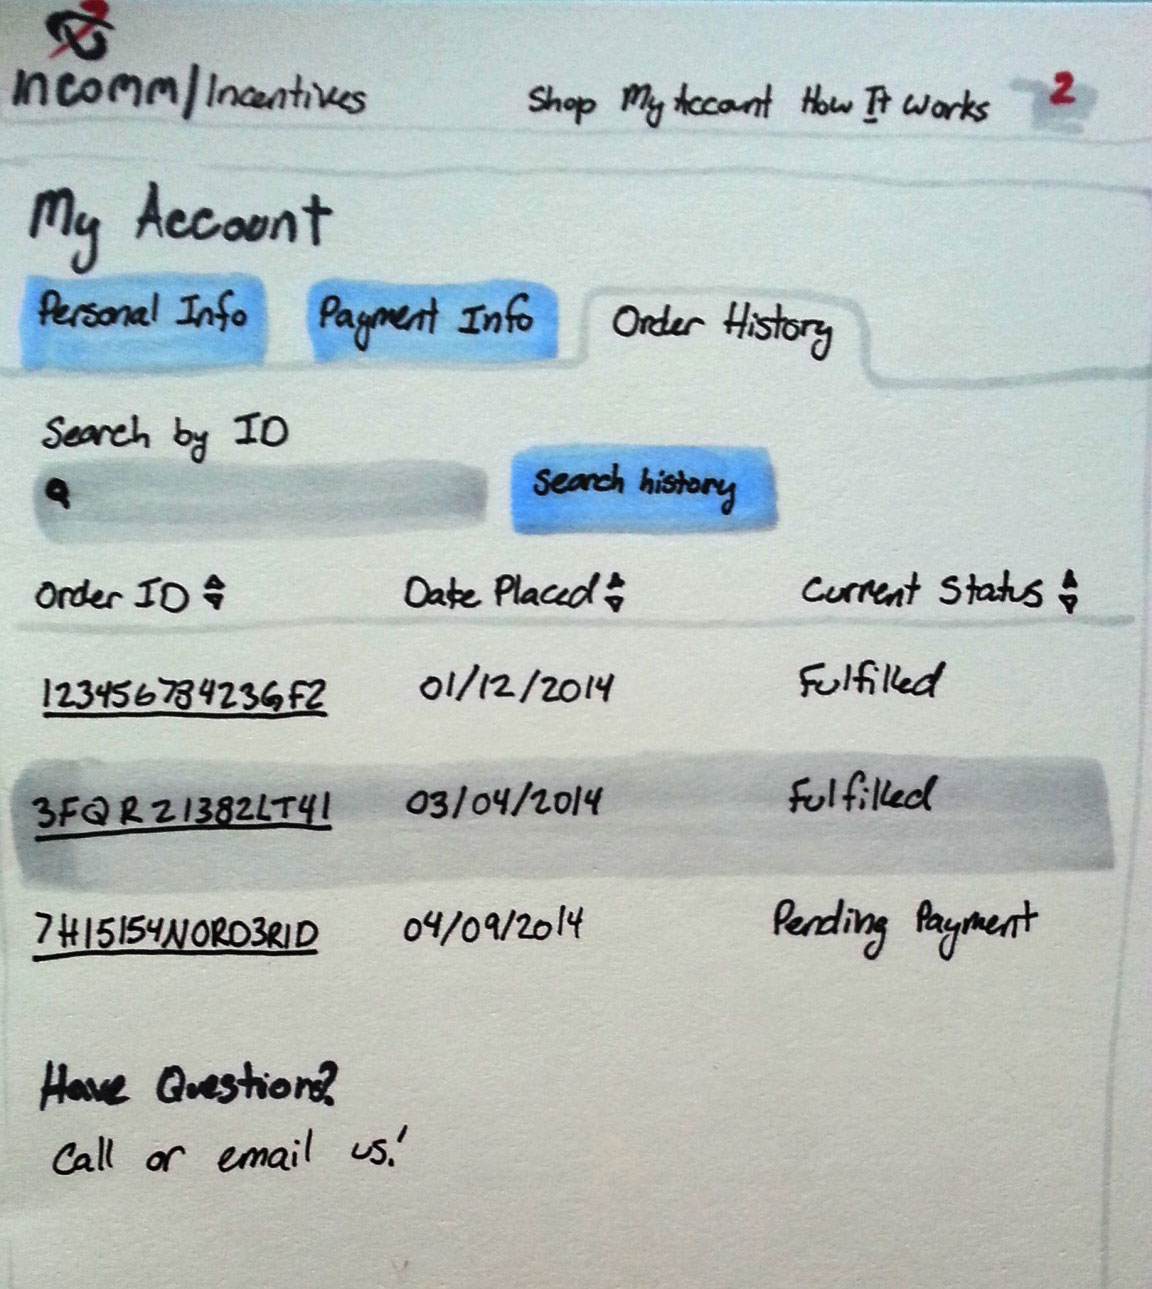 Incomm/Incentives Shop My Account How It Works 2
My Account
Personal Info Payment Info Order History
Search by ID
Search history
Order ID Date Placed Current Status
12345678423GF2 01/12/2014 Fulfilled
3FQR21382LT41 03/04/2014 Fulfilled
7H15154N0RD3R1D 04/09/2014 Pending Payment
Have Questions?
Call or email us!